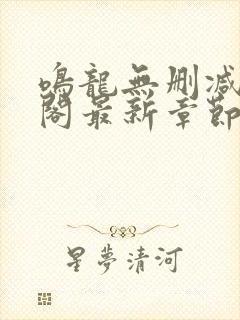 鳴龍無刪減
閣最新章節
星夢清河